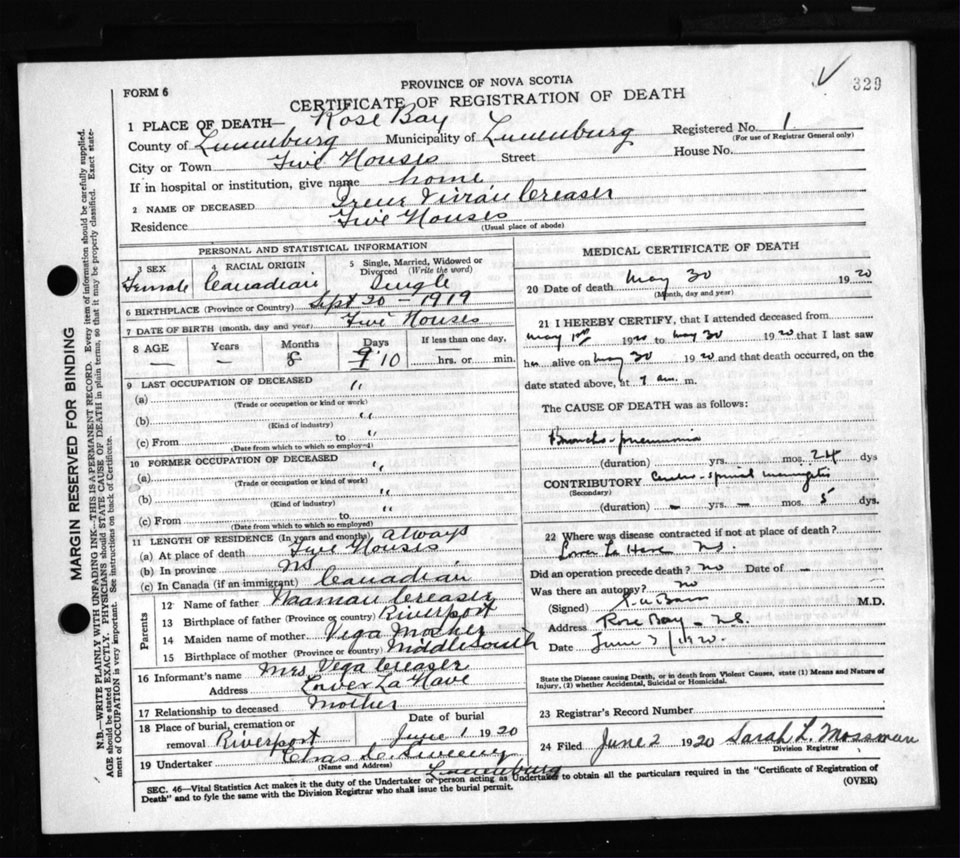 329
PROVINCE OF NOVA SCOTIA
FORM 6
CERTIFICATE OF REGISTRATION OF DEATH
1 PLACE OF DEATH— Rose Bay
County of Lunenburg Municipality of Lunenburg Registered No. 1
(For use of Registrar General only)
City or Town Five Houses Street House No.
If in hospital or institution, give name home
2 NAME OF DECEASED Irene Vivian Creaser
Residence Five Houses
(Usual place of abode)
PERSONAL AND STATISTICAL INFORMATION
3 SEX Female
4 RACIAL ORIGIN Canadian
5 Single, Married, Widowed or Divorced (Write the word) Single
6 BIRTHPLACE (Province or Country) Sept 20 - 1919
7 DATE OF BIRTH (month, day and year) Five Houses
8 AGE Years — Months 8 Days 9 10 If less than one day, hrs. or min.
9 LAST OCCUPATION OF DECEASED "
(a)
(Trade or occupation or kind or work)
(b) "
(Kind of industry)
(c) From to "
(Date from which to which so employed)
10 FORMER OCCUPATION OF DECEASED "
(a)
(Trade or occupation or kind of work)
(b) "
(Kind of industry)
(c) From to "
(Date from which to which so employed)
11 LENGTH OF RESIDENCE (In years and months) always
(a) At place of death Five Houses
(b) In province NS
(c) In Canada (if an immigrant) Canadian
Parents
12 Name of father Naaman Creaser
13 Birthplace of father (Province or country) Riverport
14 Maiden name of mother Vega Mosher
15 Birthplace of mother (Province or Country) Middle South
16 Informant's name Mrs Vega Creaser
Address Lower La Have
17 Relationship to deceased Mother
18 Place of burial, cremation or removal Riverport
Date of burial June 1 1920
19 Undertaker Chas Sweeny
(Name and Address) Lunenburg
MEDICAL CERTIFICATE OF DEATH
20 Date of death May 30 1920
(Month, day and year)
21 I HEREBY CERTIFY, that I attended deceased from
May 1920 to May 30 1920 that I last saw
her alive on May 30 1920 and that death occurred, on the
date stated above, at 7 am. m.
The CAUSE OF DEATH was as follows:
Broncho-pneumonia
(duration) yrs. mos. 24 dys
CONTRIBUTORY Cerebro-spinal meningitis
(Secondary)
(duration) — yrs. — mos. 5 dys.
22 Where was disease contracted if not at place of death?
Lower La Have N.S.
Did an operation precede death? No Date of —
Was there an autopsy? No
(Signed) M.D.
Address Rose Bay - N.S.
Date June 2/1920.
State the Disease causing Death, or in death from Violent Causes, state (1) Means and Nature of
Injury, (2) whether Accidental, Suicidal or Homicidal.
23 Registrar's Record Number
24 Filed June 2 1920 Sarah L. Mossman
Division Registrar
SEC. 46—Vital Statistics Act makes it the duty of the Undertaker or person acting as Undertaker to obtain all the particulars required in the "Certificate of Registration of
Death" and to fyle the same with the Division Registrar who shall issue the burial permit.
(OVER)
MARGIN RESERVED FOR BINDING
N.B.—WRITE PLAINLY WITH UNFADING INK—THIS IS A PERMANENT RECORD. Every item of information should be carefully supplied.
AGE should be stated EXACTLY. PHYSICIANS should STATE CAUSE OF DEATH in plain terms, so that it may be properly classified. Exact state-
ment of OCCUPATION is very important. See instructions on back of Certificate.